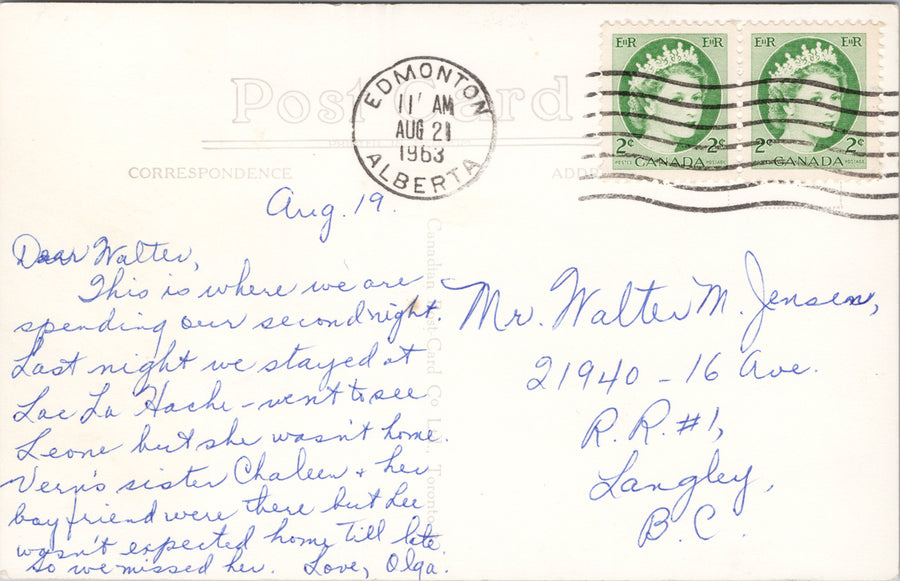 Post Card
EDMONTON
11 AM
AUG 21
1963
ALBERTA
EIIR EIIR
2¢ 2¢
POSTES CANADA POSTAGE
EIIR EIIR
2¢ 2¢
POSTES CANADA POSTAGE
CORRESPONDENCE
ADDR
Canadian Post Card Co. Ltd., Toronto
Aug. 19.
Dear Walter,
This is where we are
spending our second night.
Last night we stayed at
Lac La Hache - went to see
Leone but she wasn't home.
Vern's sister Chaleen + her
boy friend were there but Lee
wasn't expected home till late
so we missed her. Love, Olga.
Mr. Walter M. Jensen,
21940 - 16 Ave.
R.R. #1,
Langley,
B.C.